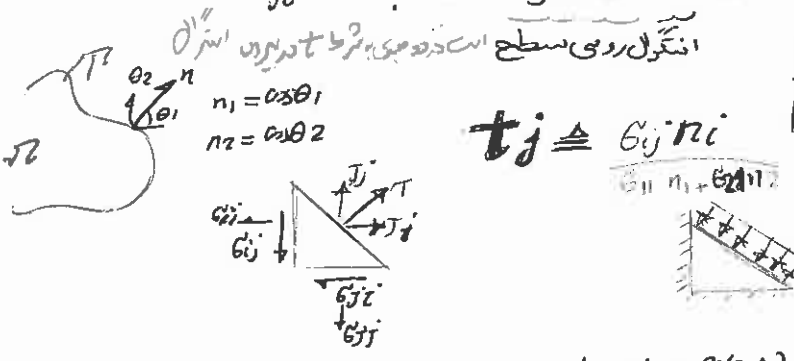 انتگرال روی سطح است در دو بعدی به شرط t در بیرون انتگرال
Γ θ2 n
θ1
n1 = cosθ1
n2 = cosθ2
Ω
tj ≜ σij ni
σ11 n1 + σ21 n2
Tj T
σii Ti
σij
σji
σjj